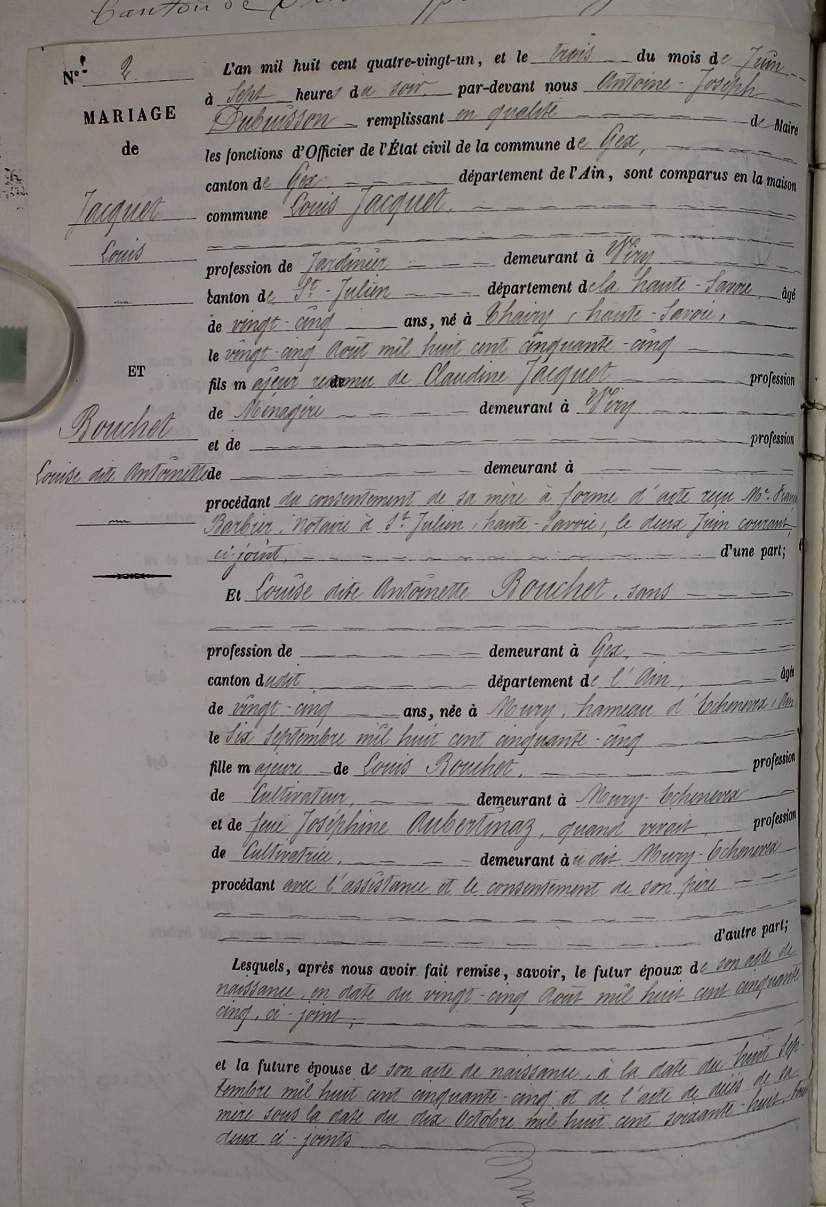 Canton de
N° 2
MARIAGE
de
Jacquet
Louis
ET
Bouchet
Louise dite Antoinette
L'an mil huit cent quatre-vingt-un, et le trois du mois de Juin
à Sept heures du soir par-devant nous Antoine-Joseph
Dubuisson remplissant en qualité de Maire
les fonctions d'Officier de l'État civil de la commune de Gex,
canton de Gex département de l'Ain, sont comparus en la maison
commune Louis Jacquet.
profession de Jardinier demeurant à Viry
canton de St-Julien département de la haute-Savoie âgé
de vingt-cinq ans, né à (haute-Savoie)
le vingt-cinq Août mil huit cent cinquante-cinq
fils majeur de Claudine Jacquet profession
de Ménagère demeurant à Viry
et de profession
de demeurant à
procédant du consentement de sa mère à forme d'acte reçu Me
Barbier, notaire à St Julien (haute-Savoie) le deux Juin courant,
ci-joint. d'une part;
Et Louise dite Antoinette Bouchet, sans
profession de demeurant à Gex,
canton dudit département de l'Ain, âgée
de vingt-cinq ans, née à Mury, hameau d'Echenevex (Ain
le Six Septembre mil huit cent cinquante-cinq
fille majeure de Louis Bouchet, profession
de Cultivateur, demeurant à Mury-Echenevex
et de feue Joséphine Aubertinaz, quand vivait profession
de Cultivatrice, demeurant au dit Mury-Echenevex
procédant avec l'assistance et le consentement de son père
d'autre part;
Lesquels, après nous avoir fait remise, savoir, le futur époux de son acte de
naissance, en date du vingt-cinq Août mil huit cent cinquante
cinq, ci-joint;
et la future épouse de son acte de naissance, à la date du huit Sep-
tembre mil huit cent cinquante-cinq et de l'acte de décès de sa
mère sous la date du dix Octobre mil huit cent soixante-huit, tous
deux ci-joints